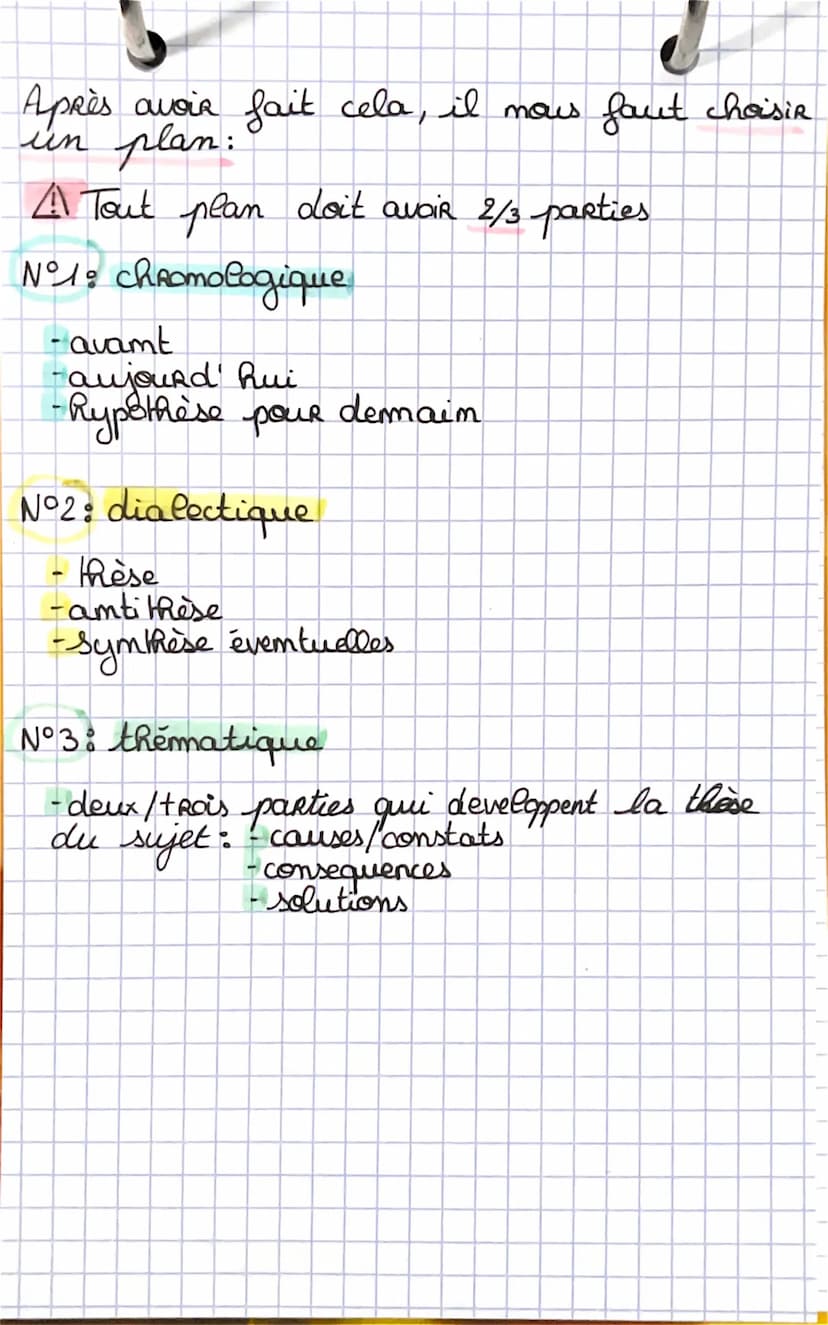 Après avoir fait cela, il nous faut choisir
un plan:
⚠ Tout plan doit avoir 2/3 parties
N°1: chronologique
- avant
- aujourd'hui
- hypothèse pour demain
N°2: dialectique
- thèse
- antithèse
- synthèse éventuelles
N°3: thématique
- deux/trois parties qui developpent la thèse
du sujet: - causes/constats
- consequences
- solutions